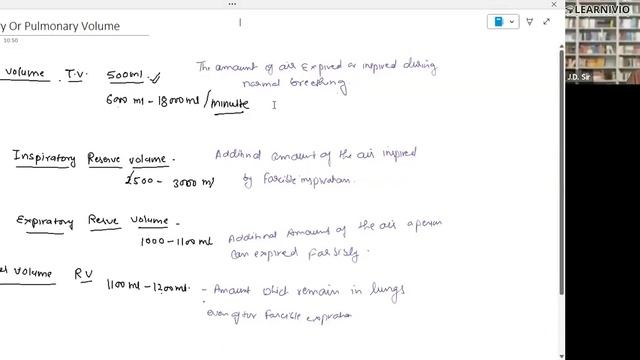 LEARNIVIO
y Or Pulmonary Volume
10:50
J.D. Sir
volume . T.V. 500ml. The amount of air Expired or inspired during
normal breathing
6000 ml - 18000 ml / minute
Inspiratory Reserve volume - Additional amount of the air inspired
2500 - 3000 ml by Forcible inspiration.
Expiratory Resrve volume -
1000 - 1100 ml Additional Amount of the air a person
can expired Forcibly.
volume RV 1100 ml - 1200 ml. - Amount which remain in lungs
even after Forcible expiration